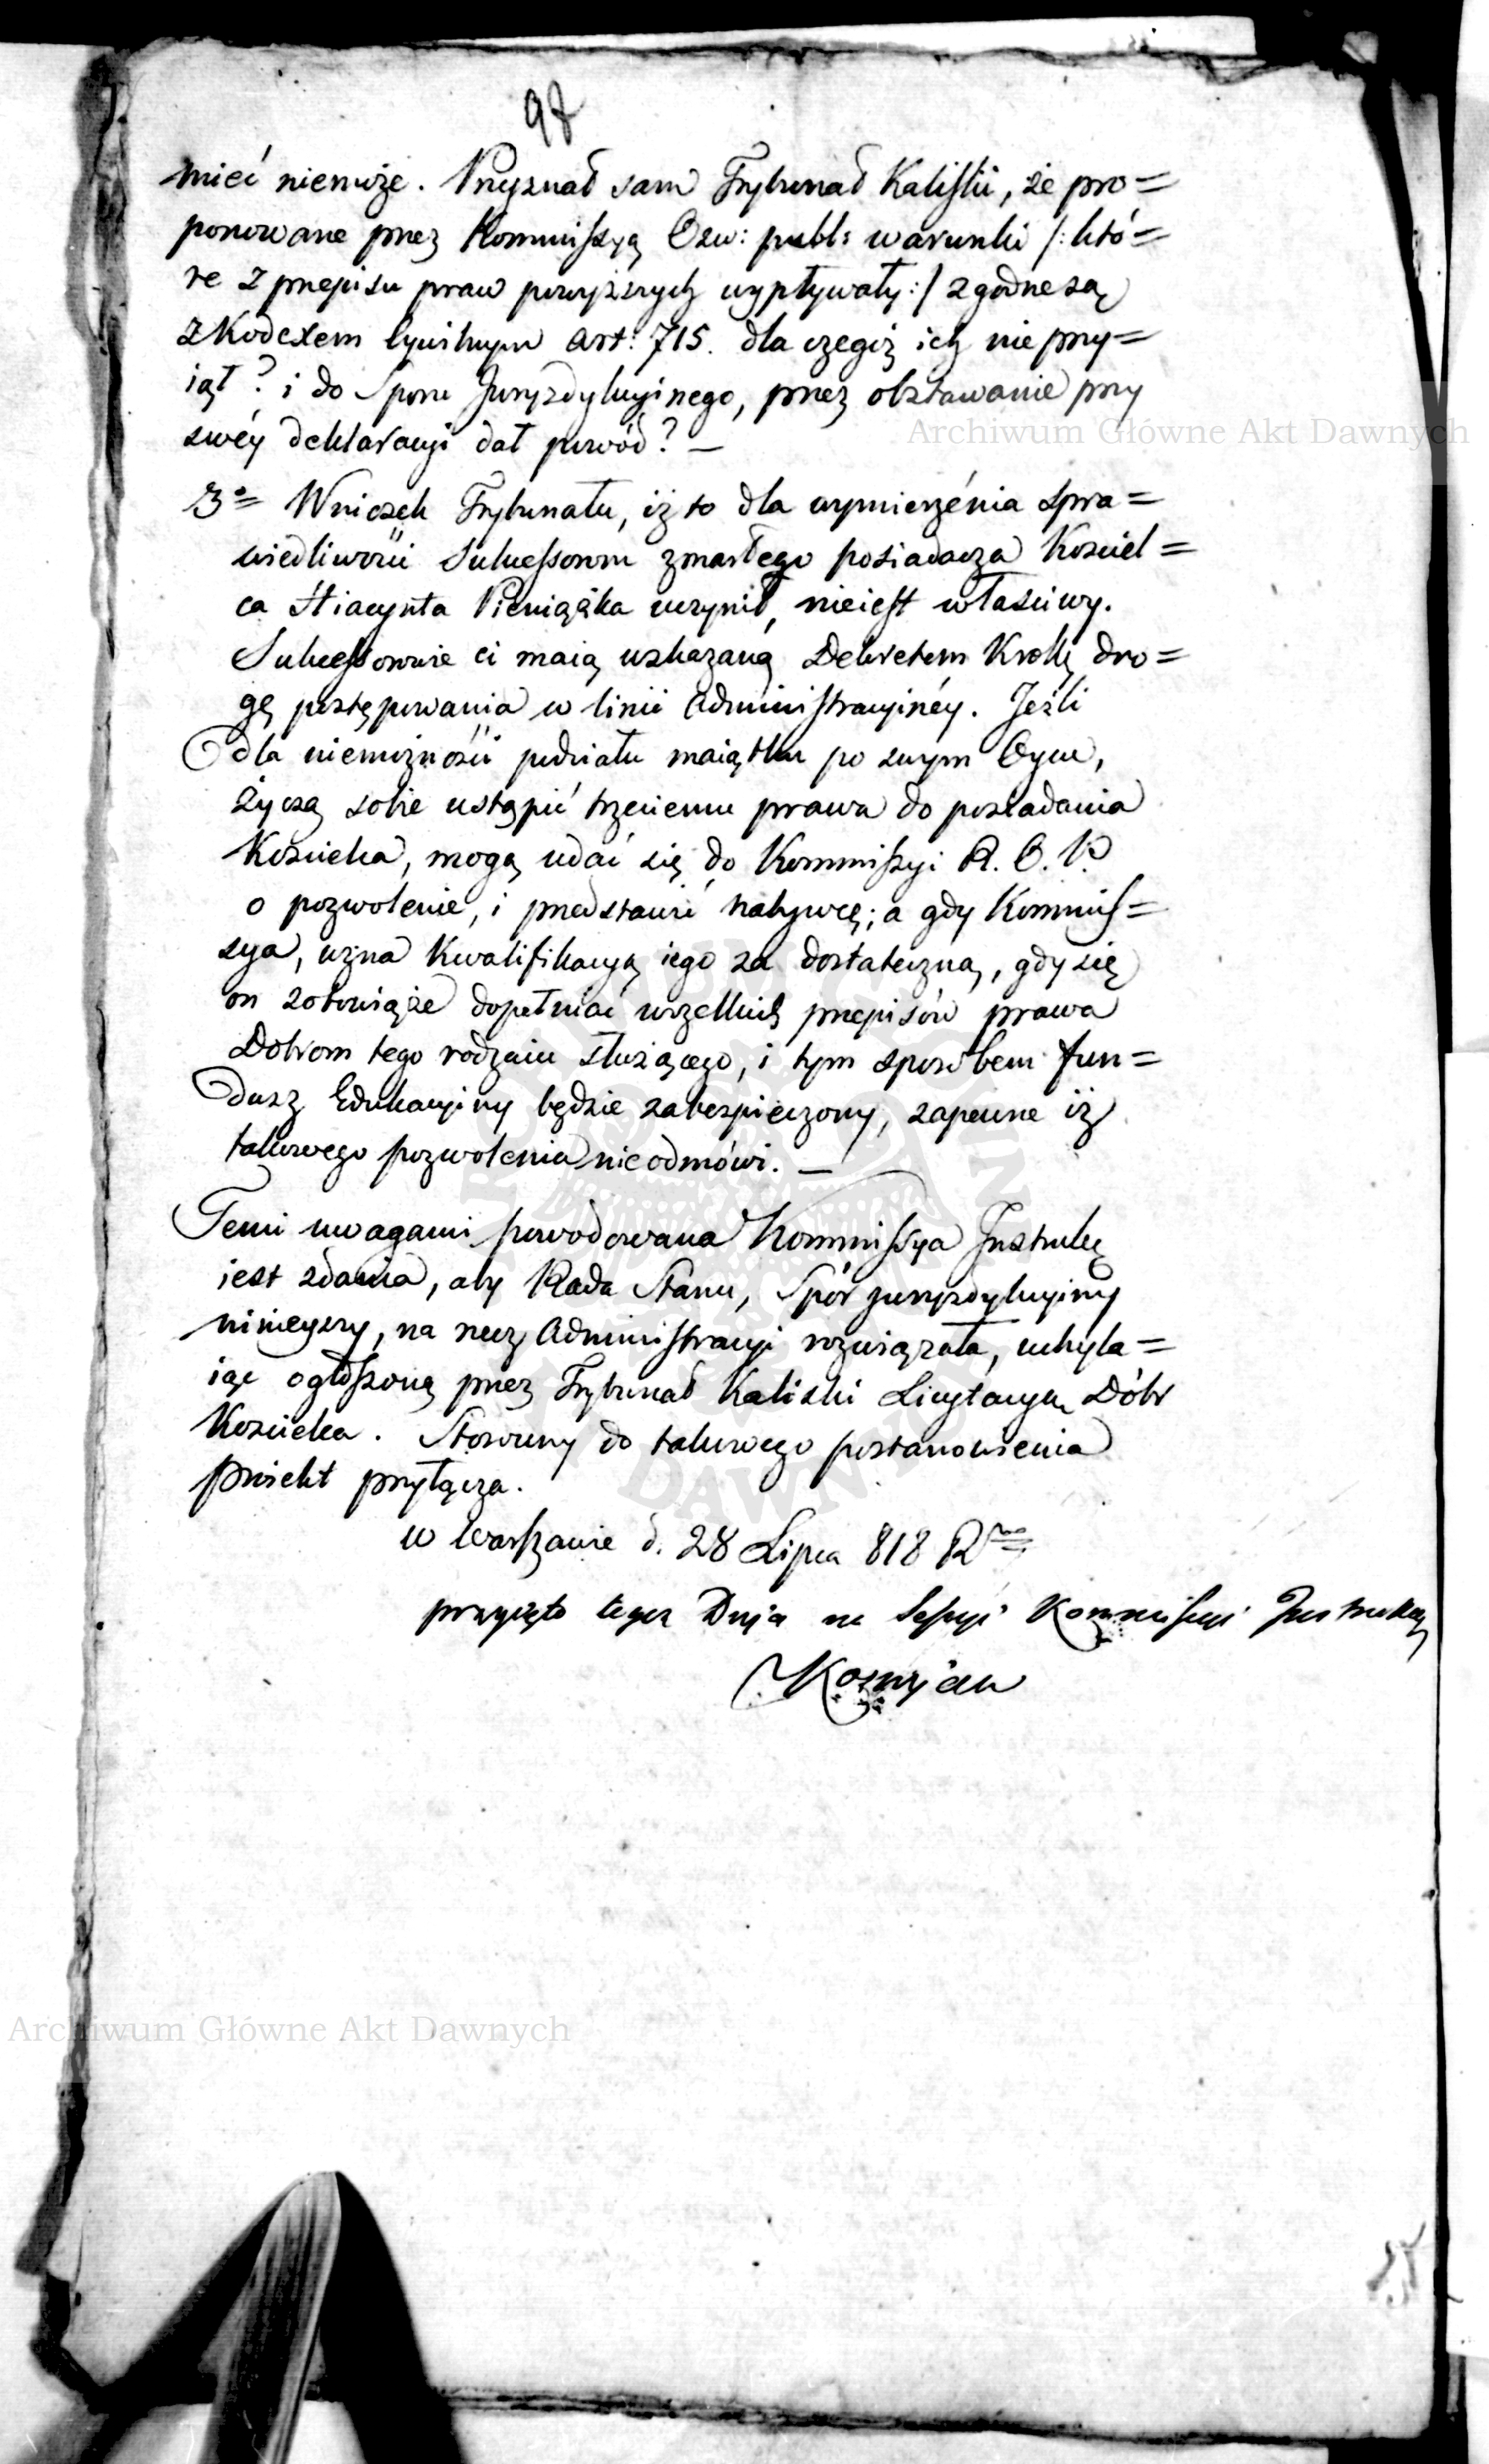 98
mieć niemoże. Przyznał sam Trybunał Kaliski, że pro=
ponowane przez Kommissyą Ośw: publ: warunki /: któ=
re z przepisu praw powyższych wypływały :/ zgodne są
z Kodexem Cywilnym Art: 715. dla czegóż ich nie przy=
iął? i do Sporu Juryzdykcyinego, przez obstawanie przy
swéy deklaracyi dał powód? —
3o= Wniosek Trybunału, iż to dla wymierzénia spra=
wiedliwości Sukcessorom zmarłego posiadacza Kosciel=
ca Hiacynta Pieniążka uczynił, nieiest właściwy.
Sukcessorowie ci maią wskazaną Dekretem KrolĘ dro=
gę postępowania w linii Administracyinéy. Jeźli
dla niemożności podziału maiątku po swym Oycu,
życzą sobie ustąpić trzeciemu prawa do posiadania
Kościelca, mogą udać się do Kommissyi R. O. P.
o pozwolenie, i przedstawić nabywcę; a gdy Kommis=
sya, uzna Kwalifikacyą iego za dostateczną, gdy się
on zobowiąże dopełniać wszelkich przepisów prawa
Dobrom tego rodzaiu służącego, i tym sposobem fun=
dusz Edukacyiny będzie zabespieczony, zapewne iż
takowego pozwolenia nie odmówi. —
Temi uwagami powodowana Kommissya Instrukcy
iest zdania, aby Rada Stanu, Spór juryzdykcyiny
ninieyszy, na rzecz Administracyi rozwiązała, uchyla=
iąc ogłoszoną przez Trybunał Kaliski Licytacyą Dóbr
Kościelca. Stosowny do takowego postanowienia
proiekt przyłącza.
w Warszawie d. 28 Lipca 818 R
przyięto tegoż Dnia na Sessyi Kommissyi Instrukcy
Kozmian
Archiwum Główne Akt Dawnych
Archiwum Główne Akt Dawnych